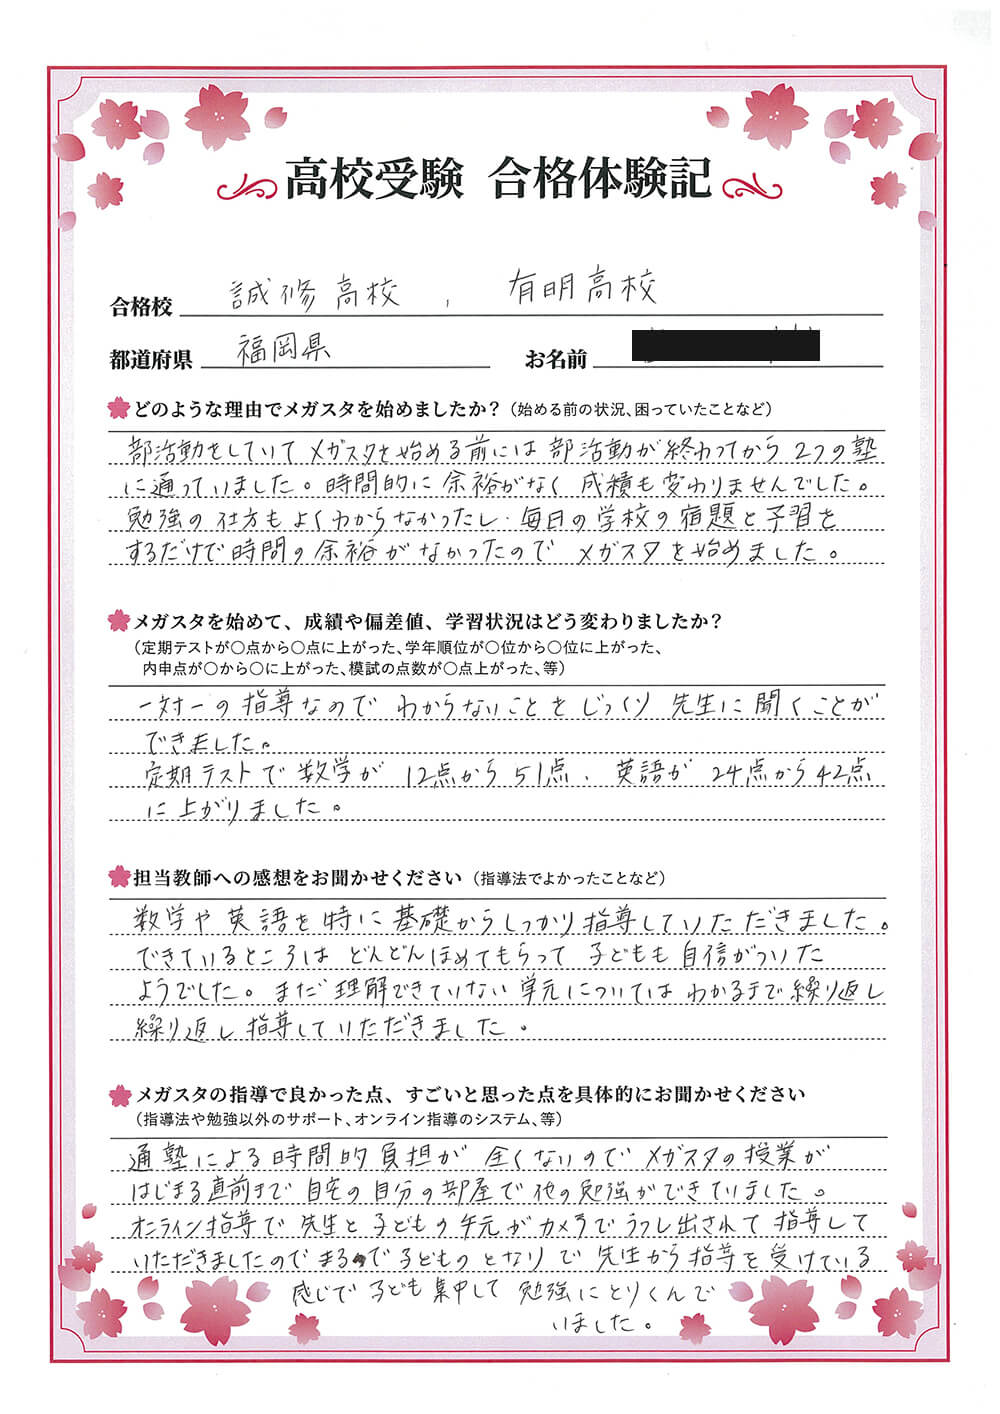 高校受験 合格体験記
合格校 誠修高校 , 有明高校
都道府県 福岡県 お名前
どのような理由でメガスタを始めましたか？（始める前の状況、困っていたことなど）
部活動をしていてメガスタを始める前には部活動が終わってから2つの塾
に通っていました。時間的に余裕がなく成績も変わりませんでした。
勉強の仕方もよくわからなかったし、毎日の学校の宿題と予習を
するだけで時間の余裕がなかったのでメガスタを始めました。
メガスタを始めて、成績や偏差値、学習状況はどう変わりましたか？
（定期テストが〇点から〇点に上がった、学年順位が〇位から〇位に上がった、
内申点が〇から〇に上がった、模試の点数が〇点上がった、等）
一対一の指導なのでわからないことをじっくり先生に聞くことが
できました。
定期テストで数学が12点から51点、英語が24点から42点
に上がりました。
担当教師への感想をお聞かせください（指導法でよかったことなど）
数学や英語を特に基礎からしっかり指導していただきました。
できているところはどんどんほめてもらって子どもも自信がついた
ようでした。まだ理解できていない単元についてはわかるまで繰り返し
繰り返し指導していただきました。
メガスタの指導で良かった点、すごいと思った点を具体的にお聞かせください
（指導法や勉強以外のサポート、オンライン指導のシステム、等）
通塾による時間的負担が全くないのでメガスタの授業が
はじまる直前まで自宅の自分の部屋で他の勉強ができていました。
オンライン指導で先生と子どもの手元がカメラでうつし出されて指導して
いただきましたのでまるで子どものとなりで先生から指導を受けている
感じで子ども集中して勉強にとりくんで
いました。